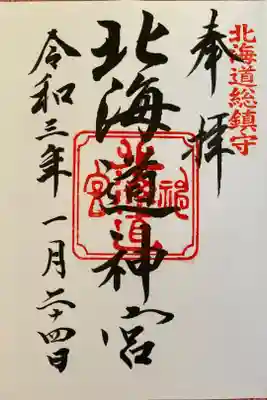 北海道総鎮守
奉拝
北海道神宮
北海道神宮
令和三年一月二十四日